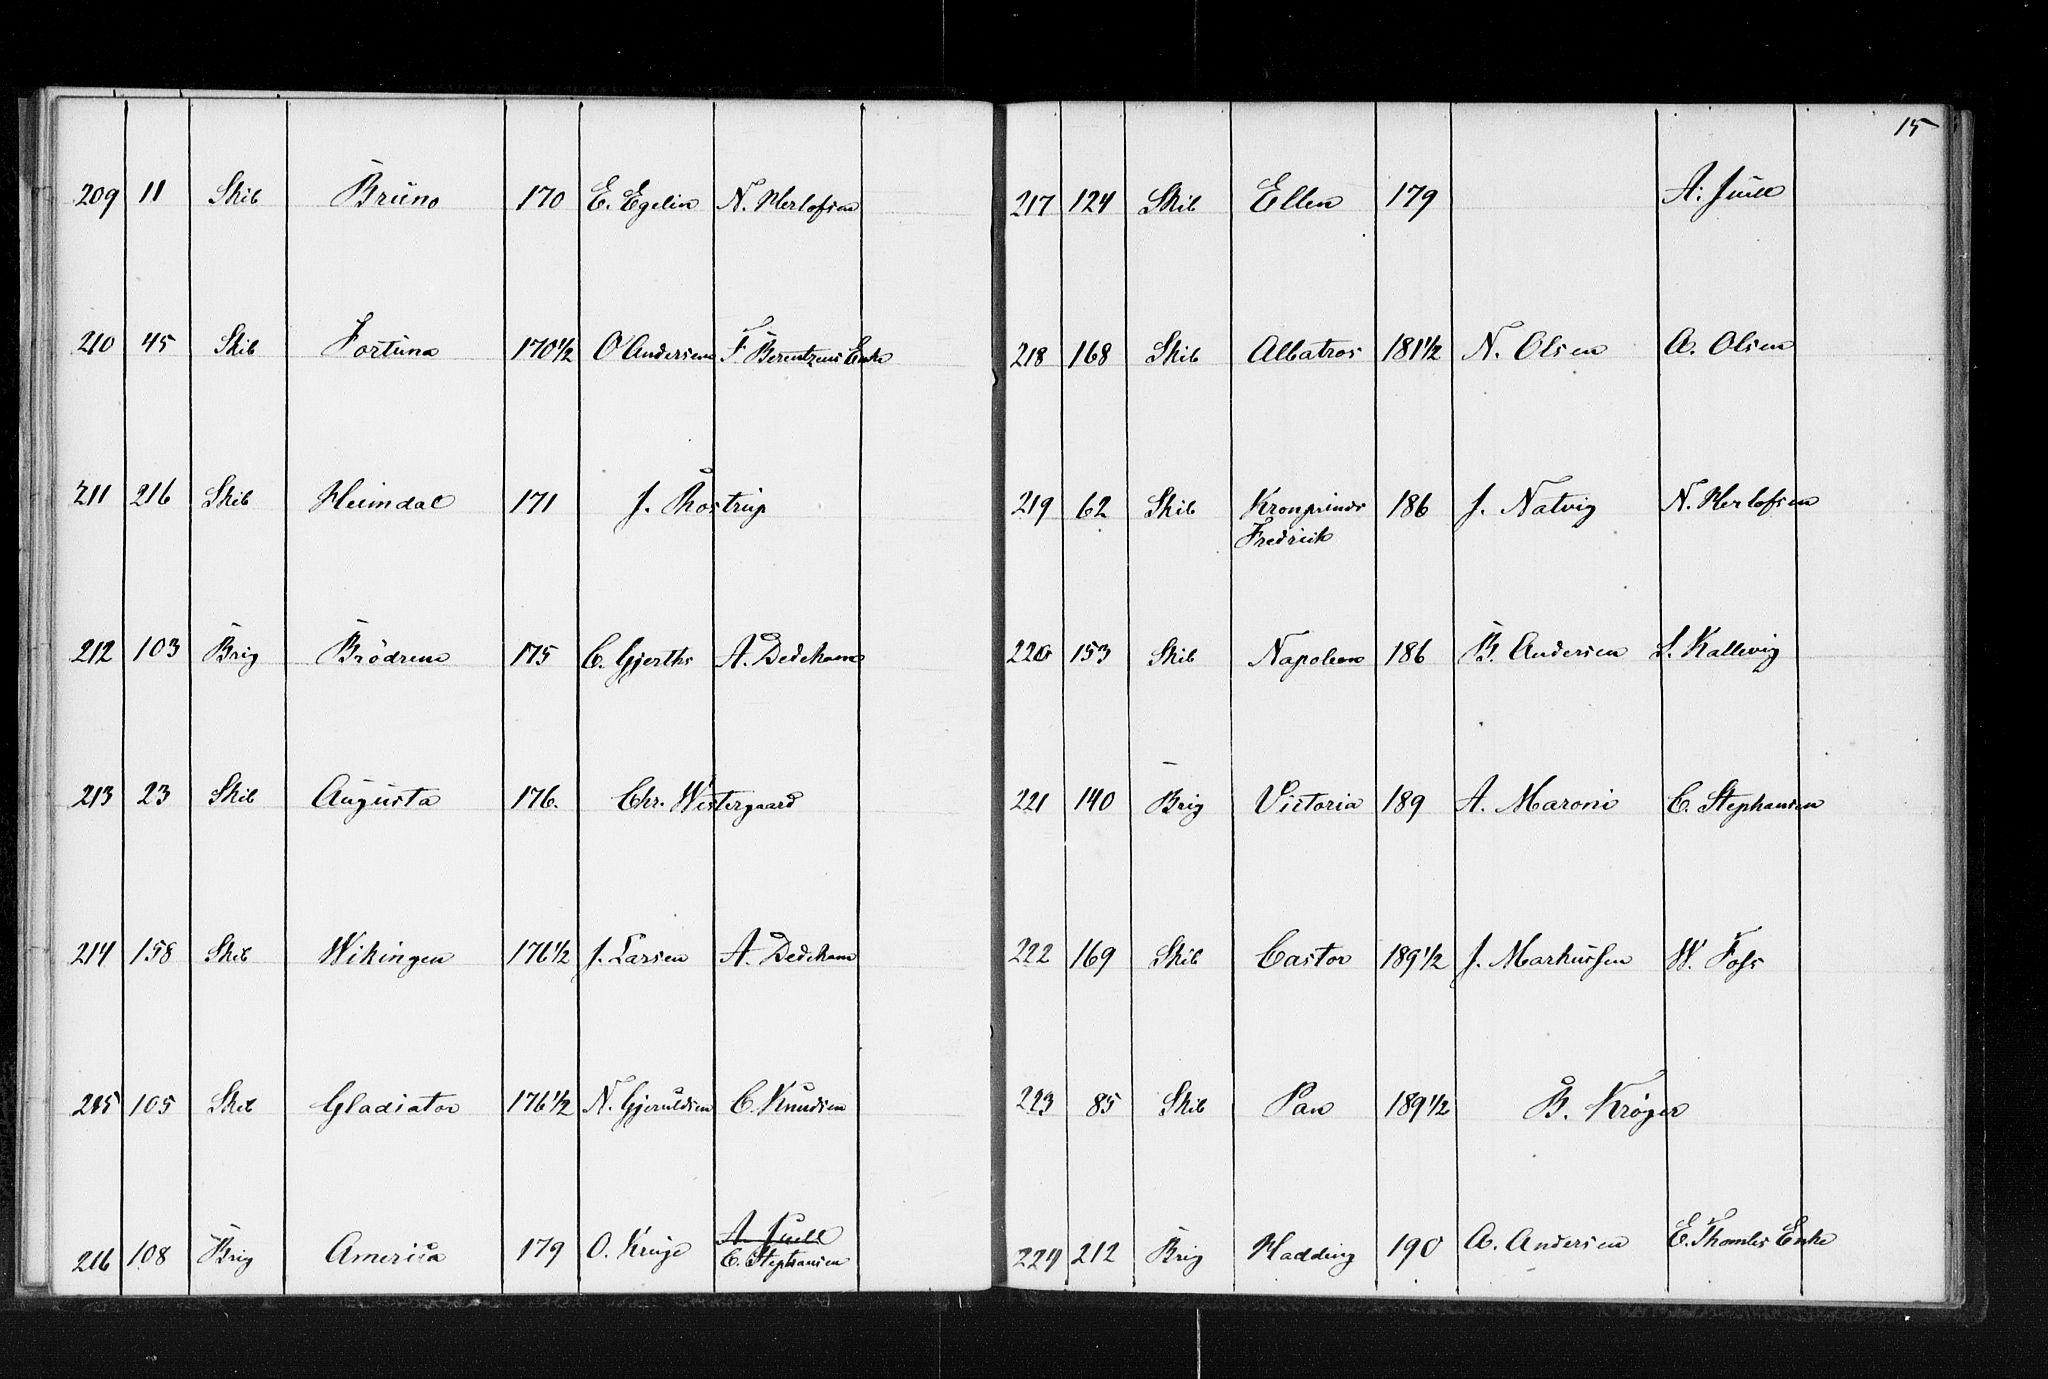 209 11 Skib Bruno 170 E. Egelin N. Herlofsen
210 45 Skib Fortuna 170 1/2 O Andersen F Berentzens Enke
211 216 Skib Heimdal 171 J. Rostrup
212 103 Brig Brödrene 175 C. Gjerths A. Dedekam
213 23 Skib Augusta 176 Chr. Westergaard
214 158 Skib Wikingen 176 1/2 J. Larsen A. Dedekam
215 105 Skib Gladiator 176 1/2 N. Gjeruldsen C. Knudsen
216 108 Brig America 179 O. Kruge A. Juell
C. Stephansen
15
217 124 Skib Ellen 179 A. Juell
218 168 Skib Albatros 181 1/2 N. Olsen A. Olsen
219 62 Skib Kronprinds 186 J. Natvig N. Herlofsen
Fredrick
220 153 Skib Napoleon 186 B. Andersen S. Kallevig
221 140 Brig Victoria 189 A. Maroni C. Stephansen
222 169 Skib Castor 189 1/2 J. Markussen W. Foss
223 85 Skib Pan 189 1/2 B. Krøger
224 212 Brig Hadding 190 A. Andersen E. Thomles Enke